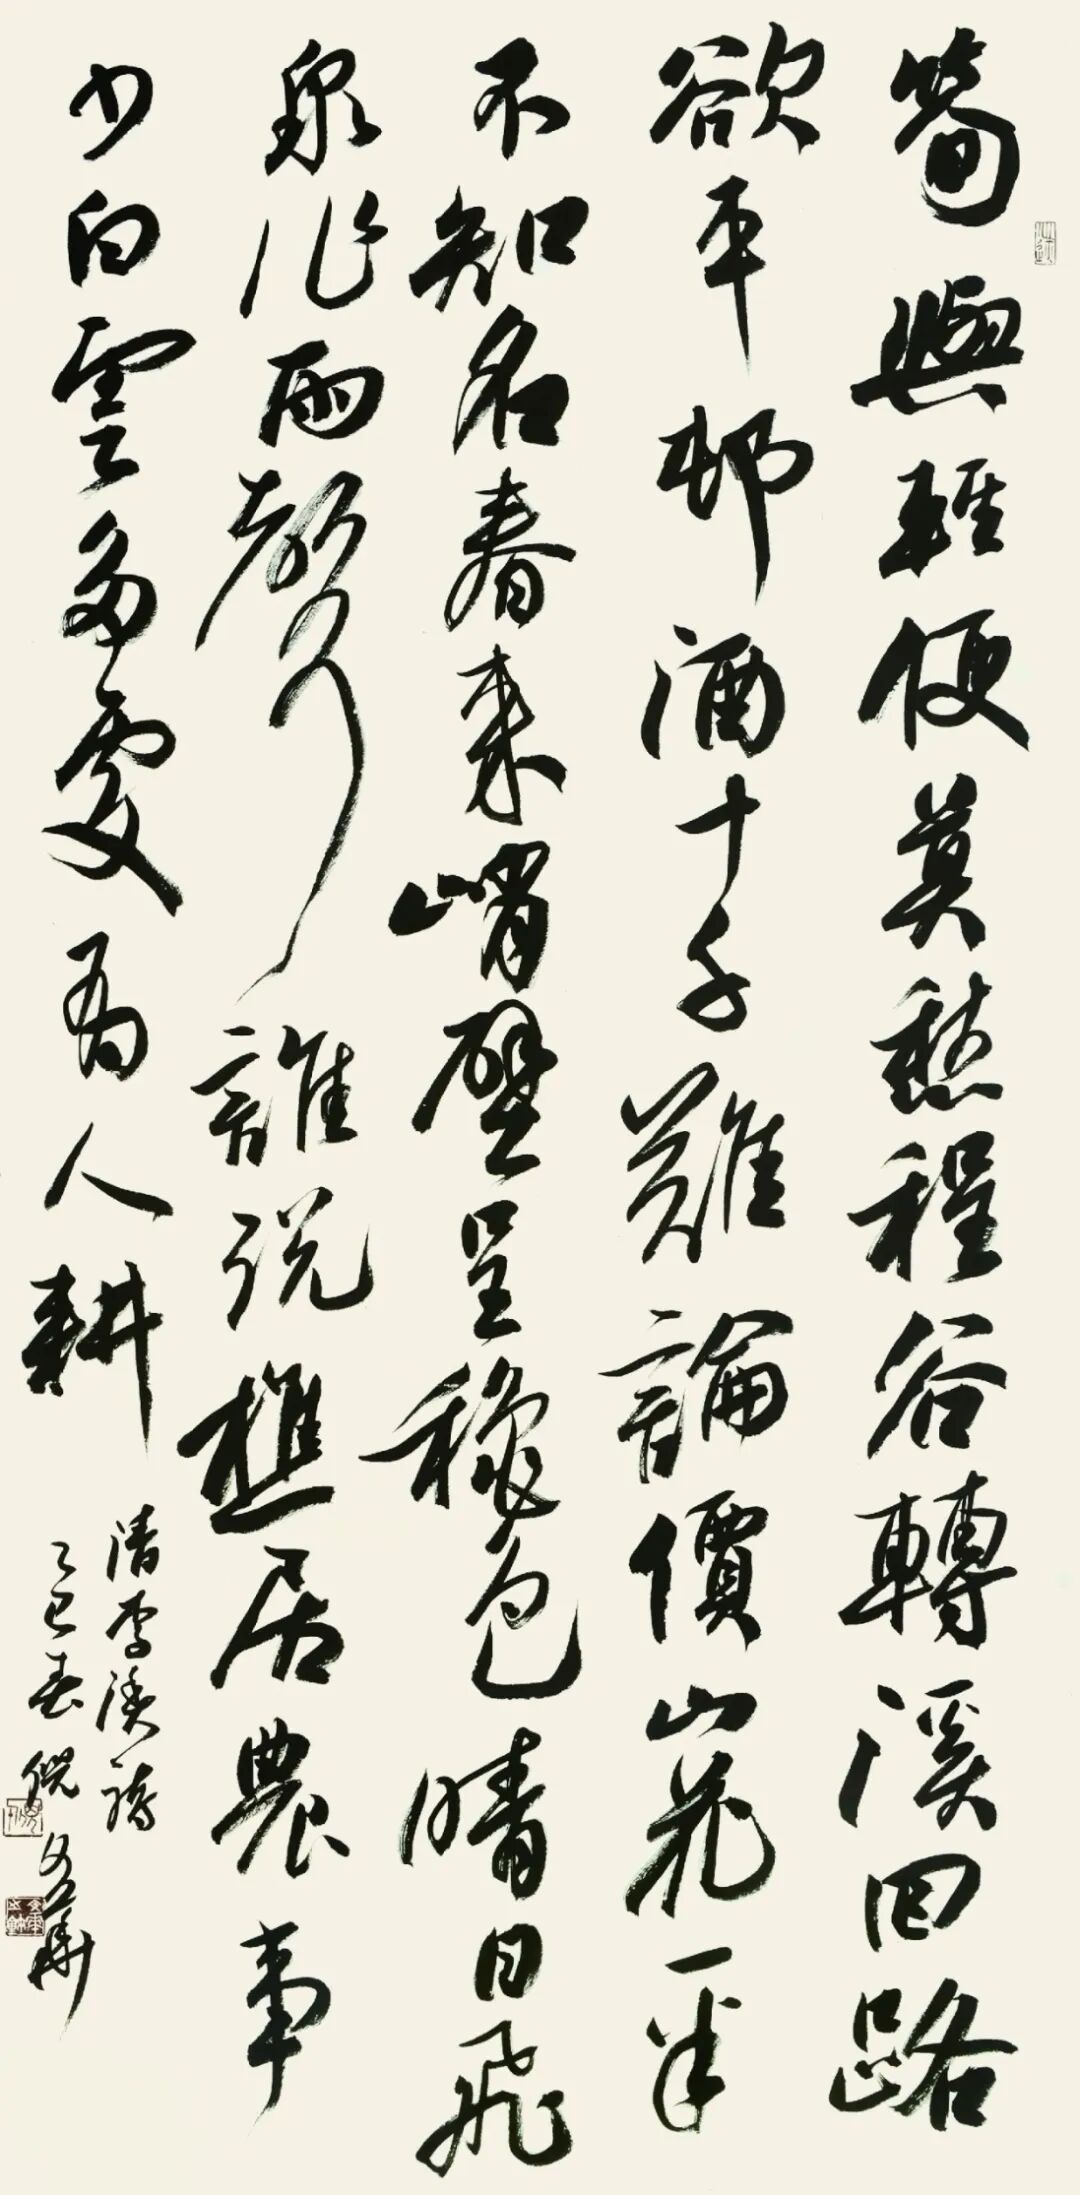 筍輿輕便莫愁程谷轉溪回路
欲平邨酒十千難論價山花一半
不知名春來峭壁呈穠色晴日飛
泉作雨聲誰説樵居農事
少白雲多處有人耕
清李漁詩
乙巳春倪文華